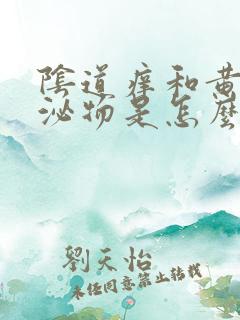 陰道癢和黃
泌物是怎麼
劉天怡
未經同意禁止轉載